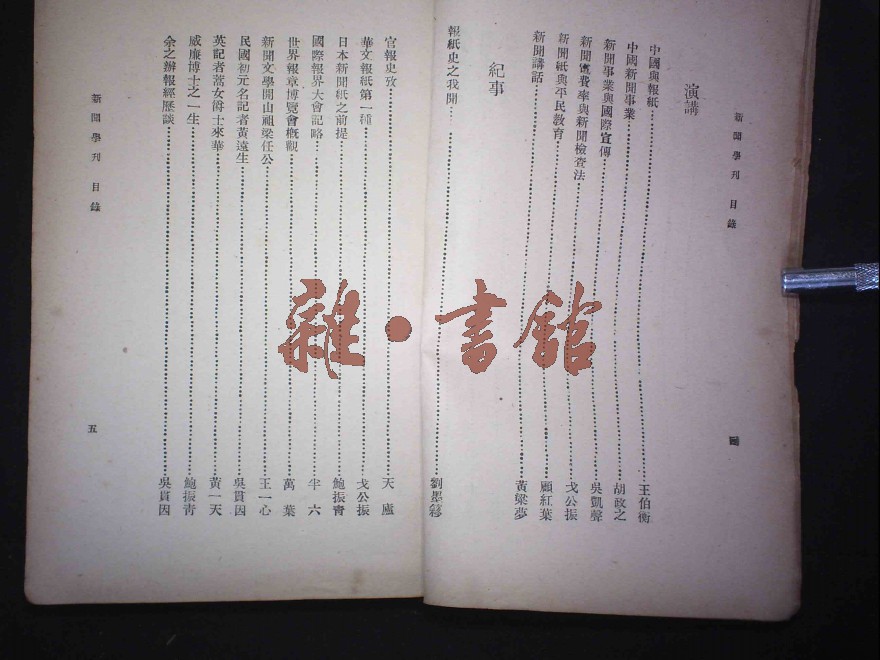 新聞學刊 目錄
演講
中國與報紙……王伯衡
中國新聞事業……胡政之
新聞事業與國際宣傳……吳凱聲
新聞電費率與新聞檢查法……戈公振
新聞紙與平民教育……顧紅葉
新聞講話……黃粱夢
紀事
報紙史之我聞……劉墨簃
四
官報史攷……天廬
華文報紙第一種……戈公振
日本新聞紙之前提……鮑振青
國際報界大會記略……半六
世界報章博覽會概觀……萬葉
新聞文學開山祖梁任公……王一心
民國初元名記者黃遠生……吳貫因
英記者濡女爵士來華……黃一天
威廉博士之一生……鮑振青
余之辦報經歷談……吳貫因
新聞學刊 目錄
五
雜·書館